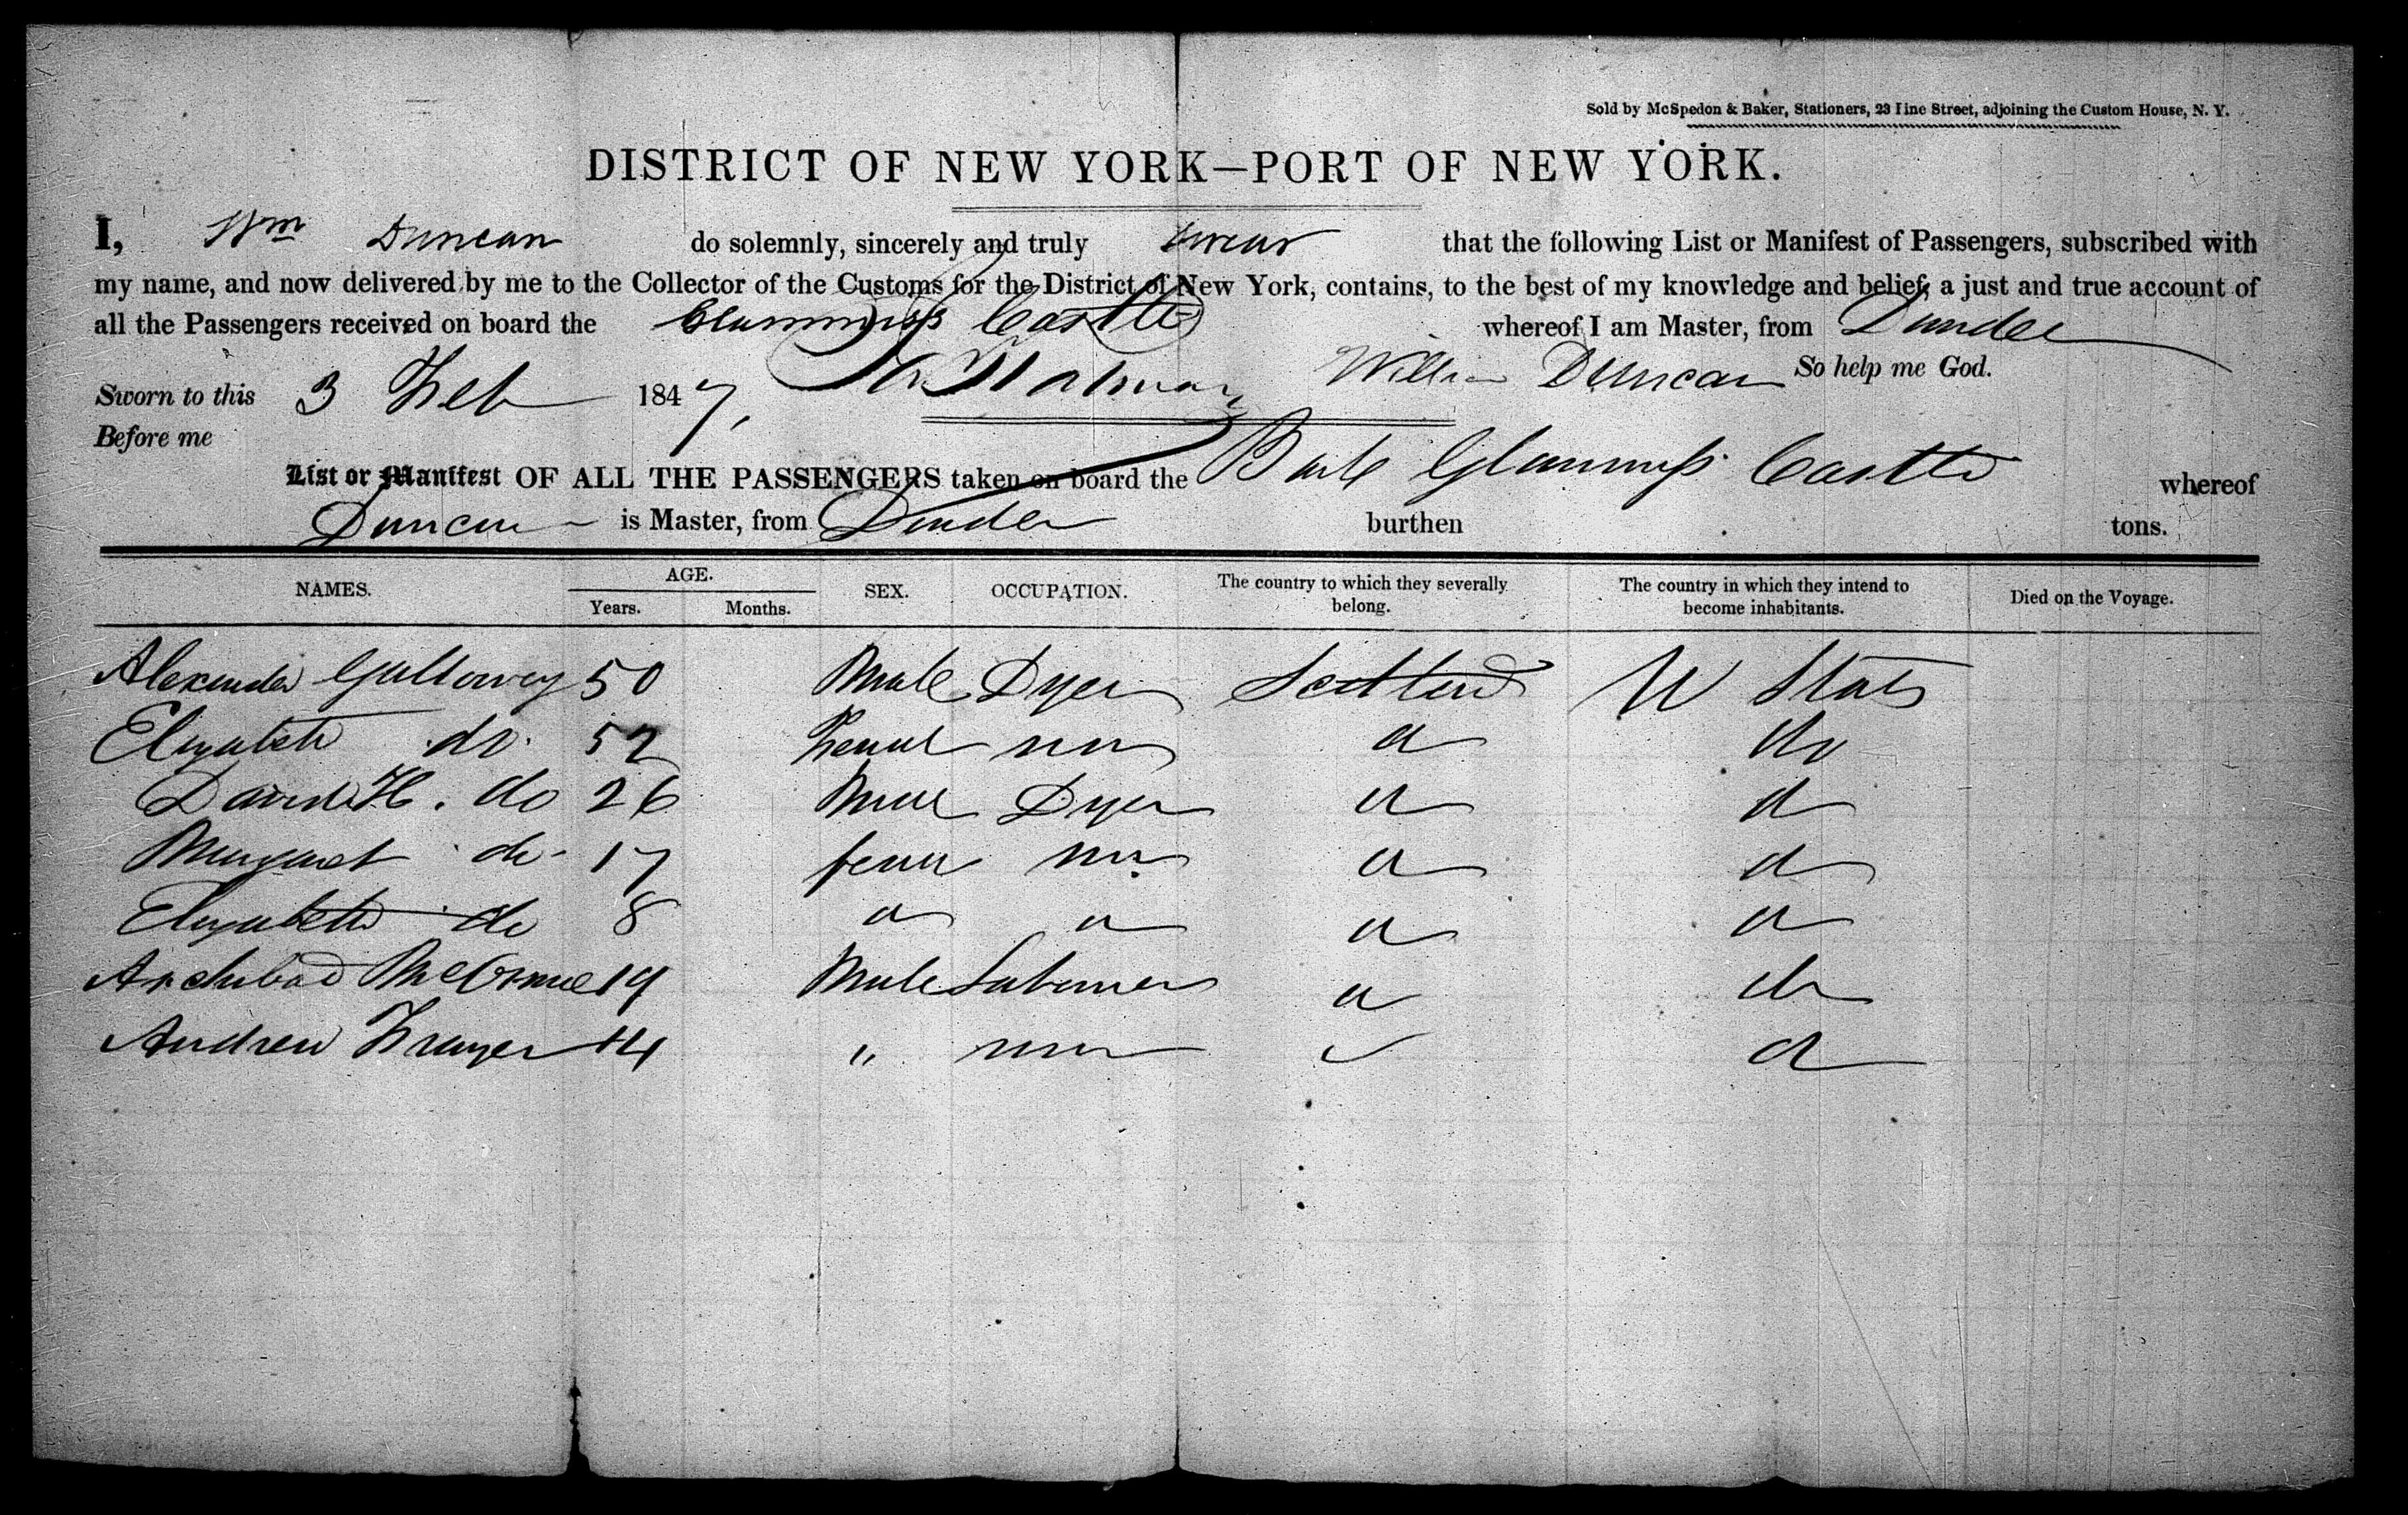 Sold by McSpedon & Baker, Stationers, 23 Pine Street, adjoining the Custom House, N. Y.
DISTRICT OF NEW YORK—PORT OF NEW YORK.
I, Wm Duncan do solemnly, sincerely and truly swear that the following List or Manifest of Passengers, subscribed with
my name, and now delivered by me to the Collector of the Customs for the District of New York, contains, to the best of my knowledge and belief, a just and true account of
all the Passengers received on board the Castle whereof I am Master, from Dundee
William Duncan So help me God.
Sworn to this 3 Feb 1847,
Before me
List or Manifest OF ALL THE PASSENGERS taken on board the Bark Glammiss Castle whereof
Duncan is Master, from Dundee burthen tons.
NAMES. AGE. SEX. OCCUPATION. The country to which they severally belong. The country in which they intend to become inhabitants. Died on the Voyage.
Years. Months.
Alexander Galloway 50 Male Dyer Scotland U States
Elizabeth do. 52 Femal non d do
David H. do 26 Male Dyer d d
Margaret do. 17 femal non d d
Elizabeth do 8 d d d d
Archibad 19 Male Labourer d do
Andrew 14 " non d